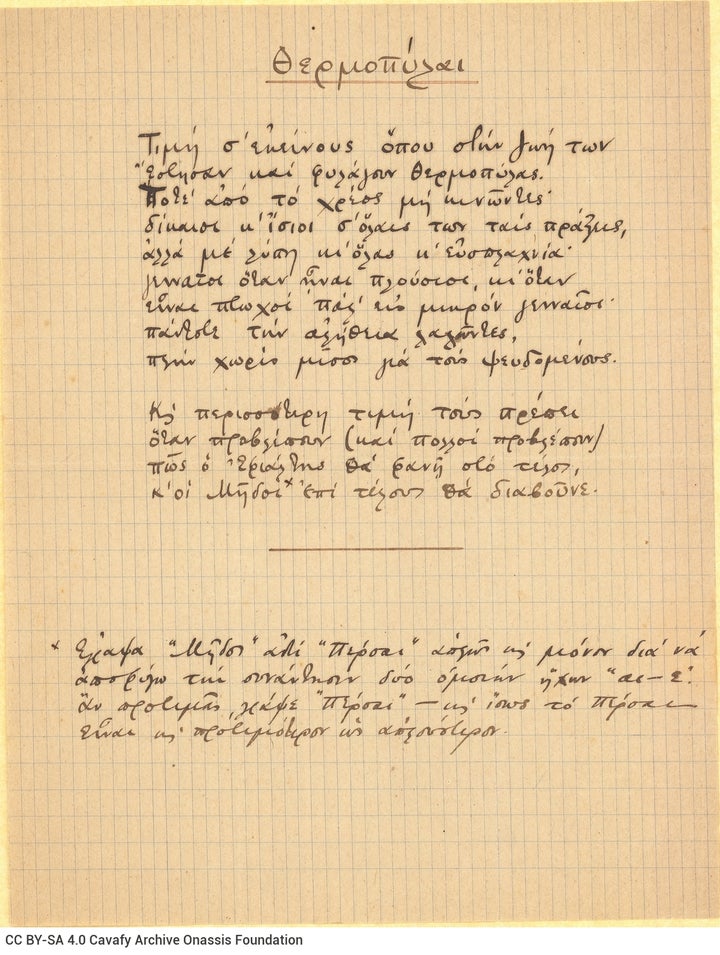 Θερμοπύλαι
Τιμή σ' εκείνους όπου στήν ζωή των
ώρισαν και φυλάγουν Θερμοπύλας.
Ποτέ από το χρέος μή κινώντες·
δίκαιοι κ' ίσιοι σ' όλαις των ταίς πράξεις,
αλλά με λύπη κι' όλας κ' ευσπλαχνία·
γενναίοι όταν ήναι πλούσιοι, κι' όταν
είναι πτωχοί πάλ' εις μικρόν γενναίοι·
πάντοτε την αλήθεια λαλώντες,
πλην χωρίς μίσος γιά τους ψευδομένους.
Κ/ περισσότερη τιμή τούς πρέπει
όταν προβλέπουν (καί πολλοί προβλέπουν)
πώς ο Εφιάλτης θα φανή στο τέλος,
κ' οι Μήδοι* επί τέλους θα διαβούνε.
* Έγραψα "Μήδοι" αντί "Πέρσαι" απλώς κ/ μόνον διά να
αποφύγω την συνάντησιν δύο ομοίων ήχων "αι–ε".
Άν προτιμάς, γράψε "Πέρσαι" — κ/ ίσως το Πέρσαι
είναι κ/ προτιμότερον ως απλούστερον.
CC BY-SA 4.0 Cavafy Archive Onassis Foundation